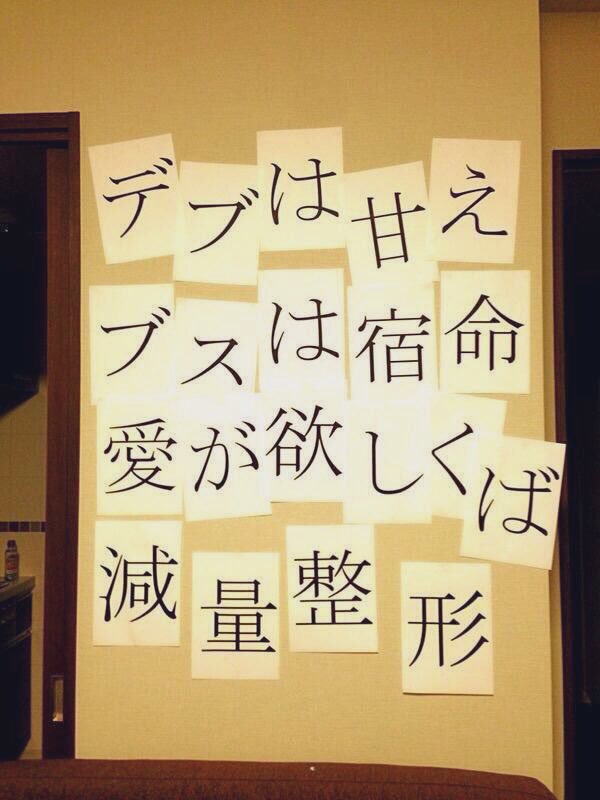 デブは甘え
ブスは宿命
愛が欲しくば
減量整形